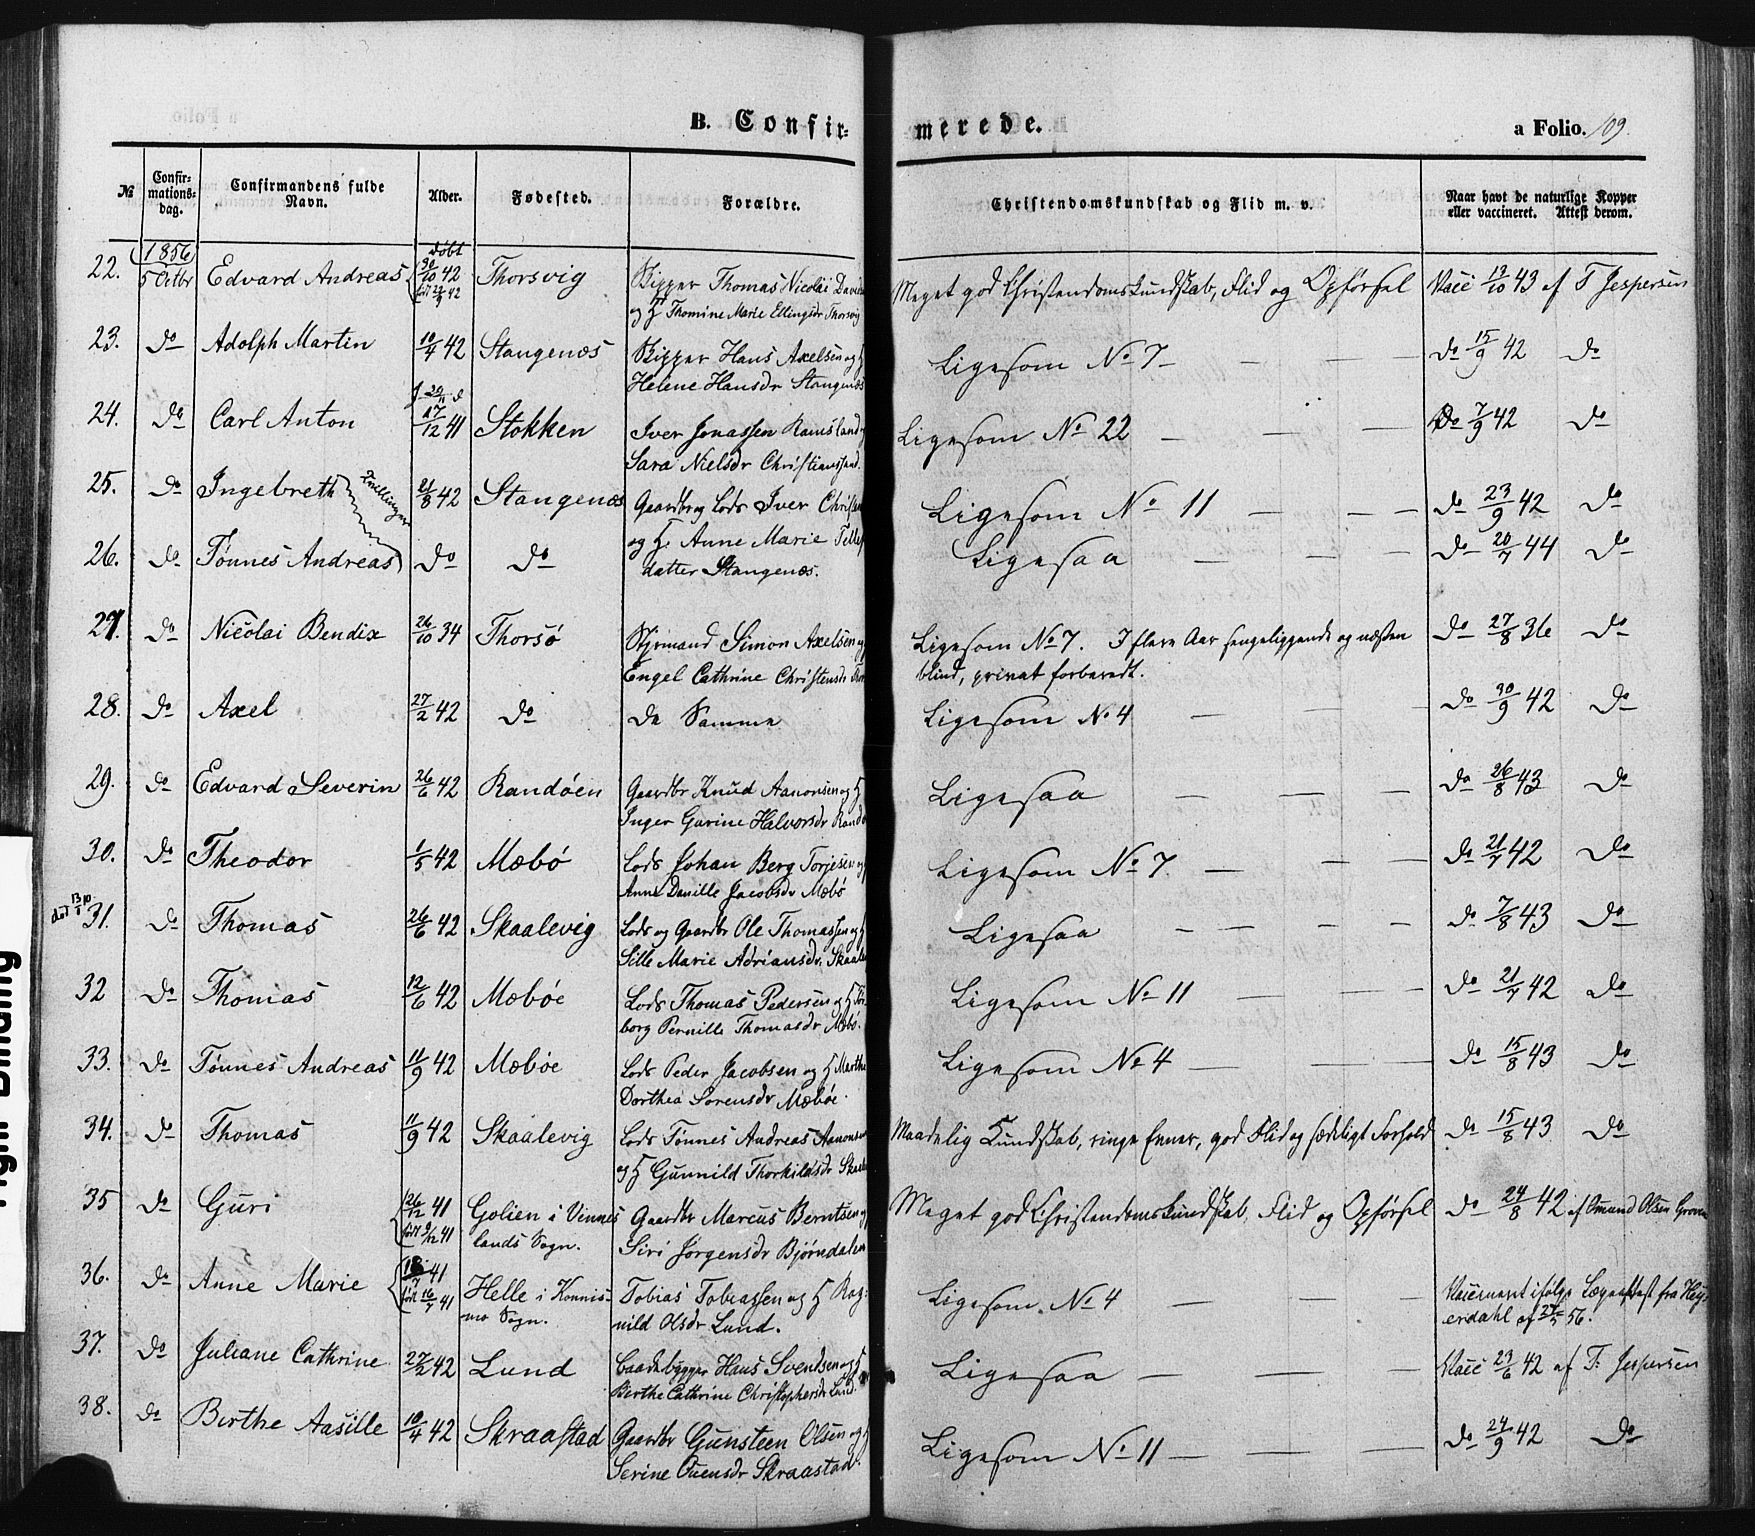 B. Confir- merede. a Folio. 109.
№ Confirmationsdag. Confirmandens fulde Navn. Alder. Fødested. Forældre. Christendomskundskab og Flid m. v. Naar havt de naturlige Kopper eller vaccineret. Attest derom.
1856 døbt
22. 5 Octbr Edvard Andreas 30/10 42 Thorsvig Skipper Thomas Nicolai Meget god Christendomskundskab, Flid og Opførsel Vacc 13/10 43 af T Jespersen
og H Thomine Marie Ellingsdr Thorsvig
23. Do Adolph Martin 10/4 42 Stangenæs Skipper Hans Axelsen og H Ligesom No 7 — — — Do 15/9 42 Do
Helene Hansdr Stangenæs
24. Do Carl Anton 17/12 41 Stokken Iver Jonassen Ramsland Ligesom No 22 — — — Do 7/9 42 Do
Sara Nielsdr Christianssand.
25. Do Ingebreth Tvillinger 21/8 42 Stangenæs Gaardbr og Lods Iver Ligesom No 11 — — — Do 23/9 42 Do
og H. Anne Marie
26. Do Tønnes Andreas Do Do datter Stangenæs. Ligesaa — — Do 20/7 44 Do
27. Do Nicolai Bendix 26/10 34 Thorsø Styrmand Simon Axelsen og Ligesom No 7. I flere Aar sengeliggende og næsten Do 27/8 36 Do
Engel Cathrine Christensdr blind, privat forberedt.
28. Do Axel 27/2 42 Do De Samme Ligesom No 4 — — — Do 30/9 42 Do
29. Do Edvard Severin 26/6 42 Randøen Gaardbr Knud Aanonsen og H Ligesaa — — — Do 26/8 43 Do
Inger Gurine Halvorsdr
30. Do Theodor 1/5 42 Mæbø Lods Johan Berg Torjesen Ligesom No 7. — — — Do 21/7 42 Do
Anne Danille Jacobsdr Mæbø
31. Do Thomas 26/6 42 Skaalevig Lods og Gaardbr Ole Thomassen og H Ligesaa — — — — — Do 7/8 43 Do
Sille Marie Adriansdr.
32 Do Thomas 12/6 42 Mæbøe Lods Thomas Pedersen og H Ligesom No 11 — — — Do 21/7 42 Do
borg Pernille Thomasdr Mæbø.
33. Do Tønnes Andreas 11/9 42 Mæbøe Lods Peder Jacobsen og H Marthe Ligesom No 4 — — — Do 15/8 43 Do
Dorthea Sørensdr Mæbøe.
34. Do Thomas 11/9 42 Skaalevig Lods Tønnes Andreas Aanonsen Maadelig Kundskab, ringe Evner, god Flid og sædeligt Forhold Do 15/8 43 Do
og H Gunnild Thorkildsdr
35 Do Guri 26/12 41 Golien i Vennes Gaardbr Marcus Berntsen og Meget god Christendomskundskab, Flid og Opførsel Do 24/8 42 af Omund Olsen
lands Sogn. Siri Jørgensdr Bjørndalen
36. Do Anne Marie Helle i Tobias Tobiassen og H Rag- Ligesom No 4 — — — Vaccineret ifølge Lægeattest fra Hey-
født 16/7 41 Sogn. nild Olsdr Lund. erdahl af 56.
37. Do Juliane Cathrine 27/2 42 Lund Baadebygger Hans Svendsen og H Ligesaa — — — Vacc 23/6 42 af T: Jespersen
Berthe Cathrine Christophersdr Lund.
38. Do Birthe Aasille 10/4 42 Skraastad Gaardbr Gunsteen Olsen og H Ligesom No 11 — — — Do 24/9 42 Do
Serine Ouensdr Skraastad.